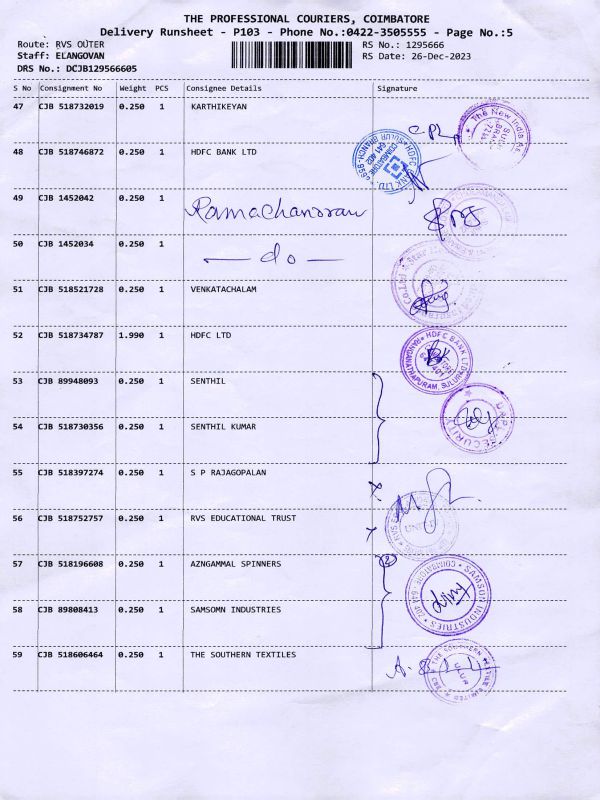 THE PROFESSIONAL COURIERS, COIMBATORE
Delivery Runsheet - P103 - Phone No.:0422-3505555 - Page No.:5
Route: RVS OUTER
RS No.: 1295666
Staff: ELANGOVAN
RS Date: 26-Dec-2023
DRS No.: DCJB129566605
S No Consignment No Weight PCS Consignee Details Signature
47 CJB 518732019 0.250 1 KARTHIKEYAN
The New India
48 CJB 518746872 0.250 1 HDFC BANK LTD
HDFC BANK LTD
SULUR BRANCH
COIMBATORE
641 402
49 CJB 1452042 0.250 1 Ramachandran
50 CJB 1452034 0.250 1 — do —
51 CJB 518521728 0.250 1 VENKATACHALAM
52 CJB 518734787 1.990 1 HDFC LTD
HDFC BANK LTD
RANGANATHAPURAM, SULUR
53 CJB 89948093 0.250 1 SENTHIL
SECURITY
54 CJB 518730356 0.250 1 SENTHIL KUMAR
55 CJB 518397274 0.250 1 S P RAJAGOPALAN
56 CJB 518752757 0.250 1 RVS EDUCATIONAL TRUST
57 CJB 518196608 0.250 1 AZNGAMMAL SPINNERS
2
SAMSON INDUSTRIES
COIMBATORE - 641
58 CJB 89808413 0.250 1 SAMSOMN INDUSTRIES
59 CJB 518606464 0.250 1 THE SOUTHERN TEXTILES
THE SOUTHERN TEXTILE LIMITED